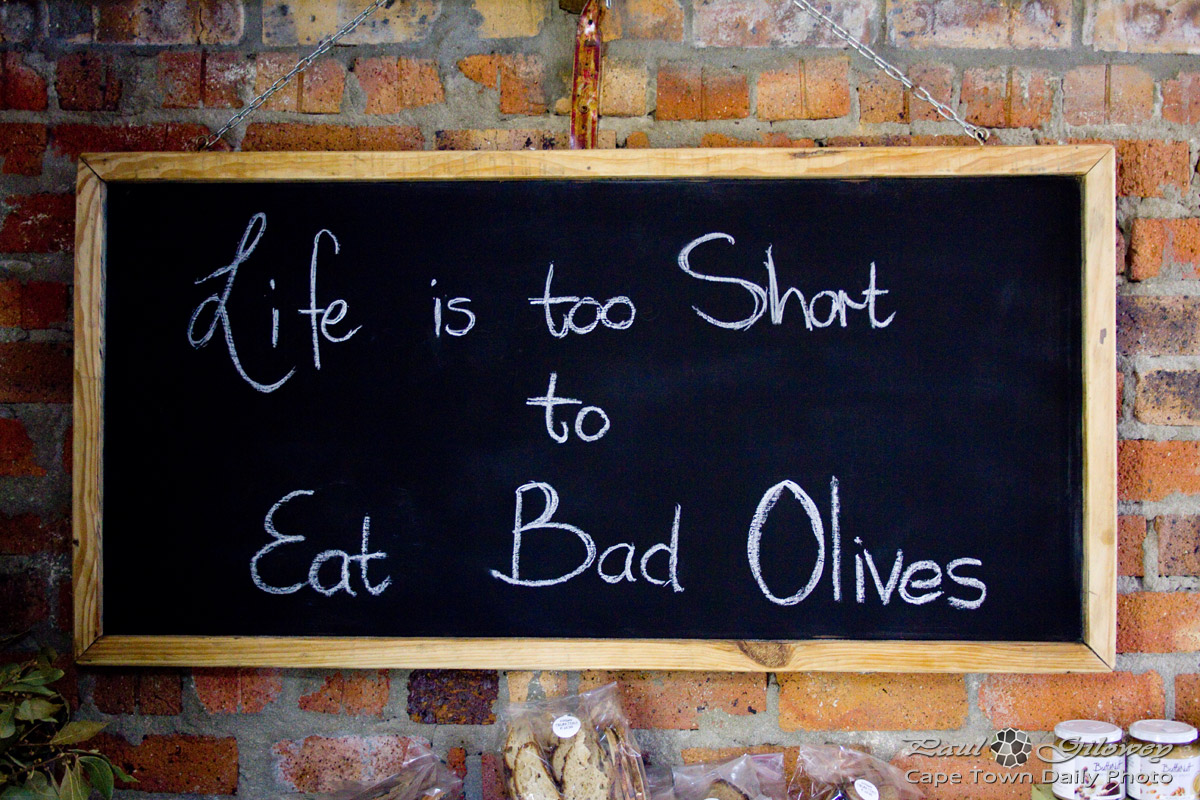 Life is too Short
to
Eat Bad Olives
Paul Gilowey
Cape Town Daily Photo